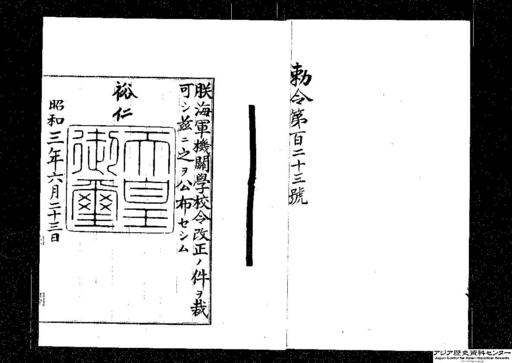 勅令第百二十三號
朕海軍機關學校令改正ノ件ヲ裁
可シ茲ニ之ヲ公布セシム
裕仁
天皇
御璽
昭和三年六月二十三日
アジア歴史資料センター
Japan Center for Asian Historical Records